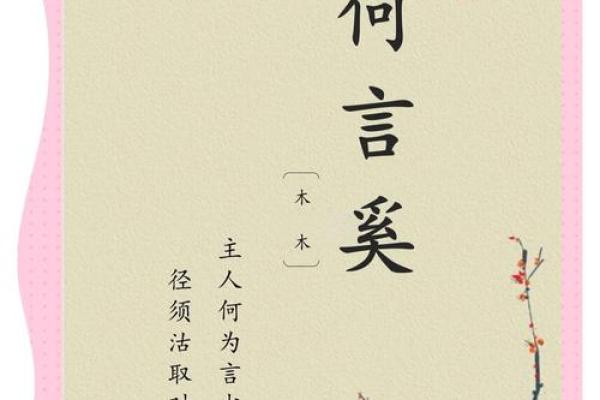 何言奚
木木
主人何为言
径须沽取